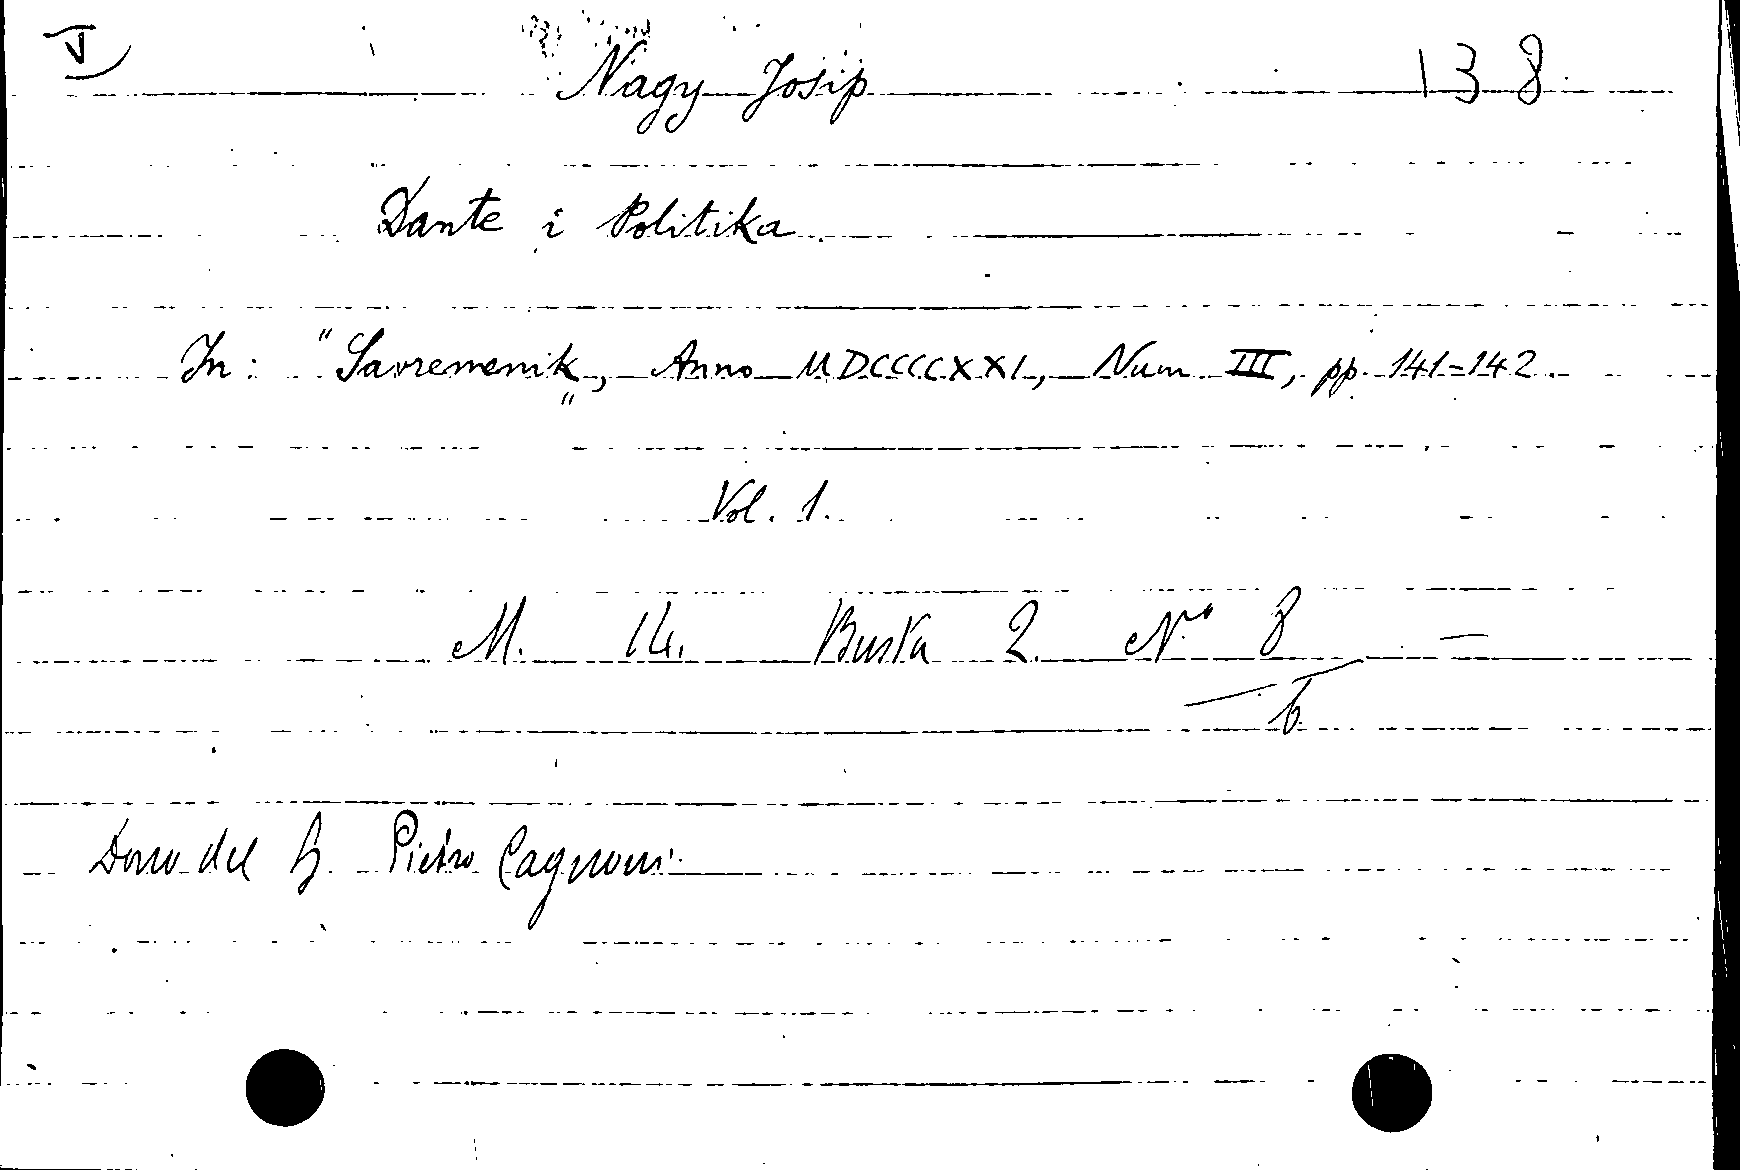 V
Nagy Josip 138
Dante i Politika.
In: "Savremenik", Anno MDCCCCXXI, Num III, pp. 141-142.
Vol. 1.
M. 14. Busta 2. N° 8 —
b
Dono del G. Pietro Cagnoni.